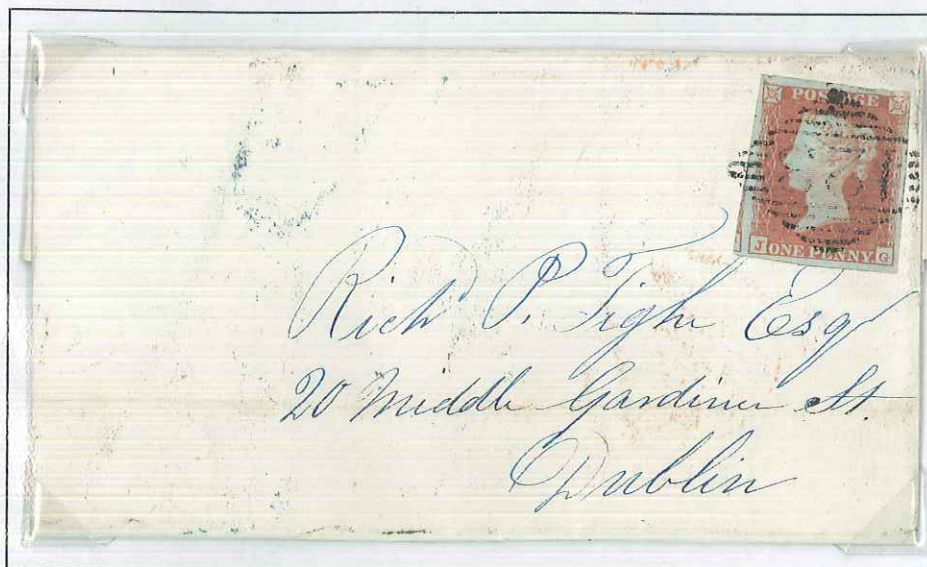 POSTAGE
J ONE PENNY G
Rich P. Tighe Esqr
20 Middle Gardiner St.
Dublin